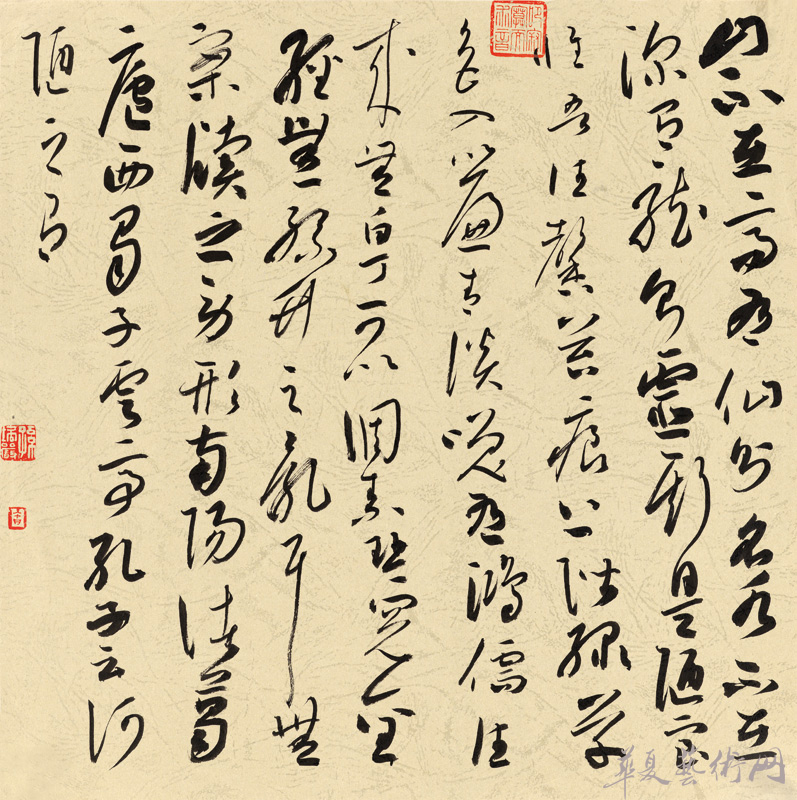 山不在高有仙則名水不在
深有龍則靈斯是陋室
惟吾德馨苔痕上階綠草
色入簾青談笑有鴻儒往
來無白丁可以調素琴閱金
經無絲竹之亂耳無
案牘之勞形南陽諸葛
廬西蜀子雲亭孔子云何
陋之有
華夏藝術网